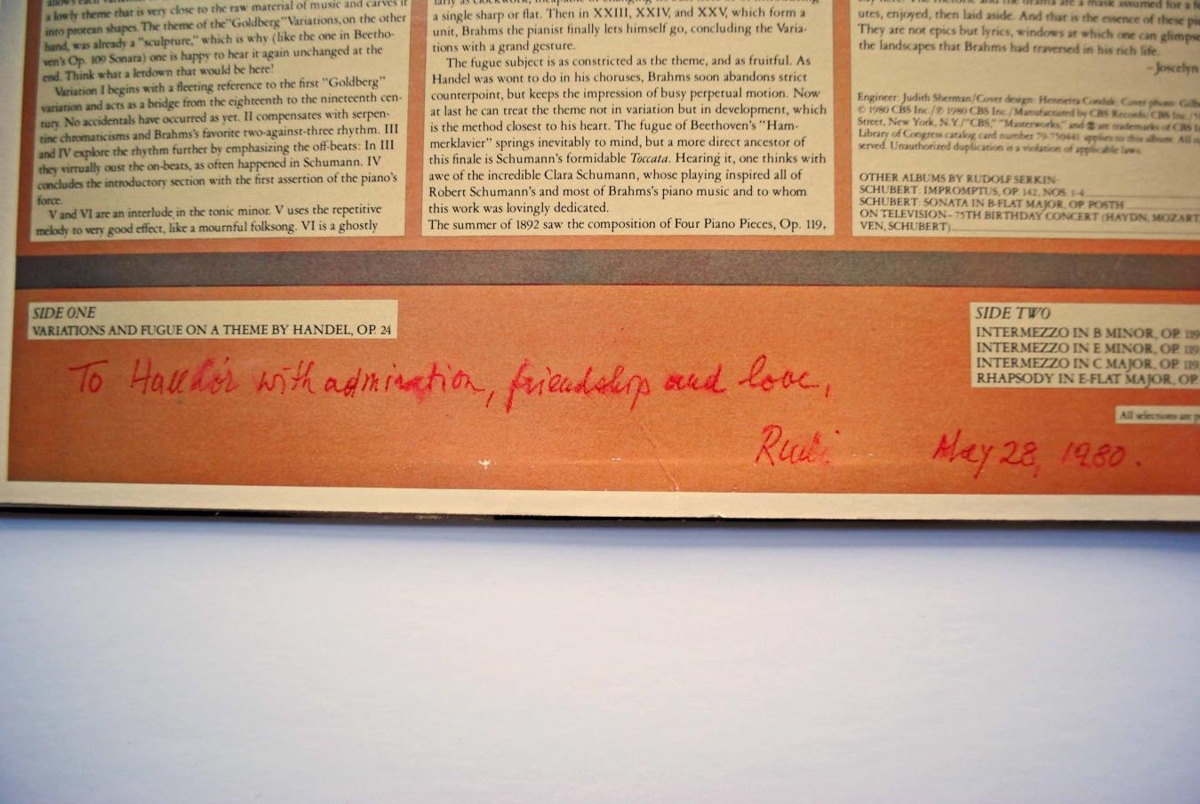 a lowly theme that is very close to the raw material of music and carves it
into protean shapes. The theme of the "Goldberg" Variations, on the other
hand, was already a "sculpture," which is why (like the one in Beetho-
ven's Op. 109 Sonata) one is happy to hear it again unchanged at the
end. Think what a letdown that would be here!
Variation I begins with a fleeting reference to the first "Goldberg"
variation and acts as a bridge from the eighteenth to the nineteenth cen-
tury. No accidentals have occurred as yet. II compensates with serpen-
tine chromaticisms and Brahms's favorite two-against-three rhythm. III
and IV explore the rhythm further by emphasizing the off-beats: In III
they virtually oust the on-beats, as often happened in Schumann. IV
concludes the introductory section with the first assertion of the piano's
force.
V and VI are an interlude in the tonic minor. V uses the repetitive
melody to very good effect, like a mournful folksong. VI is a ghostly
a single sharp or flat. Then in XXIII, XXIV, and XXV, which form a
unit, Brahms the pianist finally lets himself go, concluding the Varia-
tions with a grand gesture.
The fugue subject is as constricted as the theme, and as fruitful. As
Handel was wont to do in his choruses, Brahms soon abandons strict
counterpoint, but keeps the impression of busy perpetual motion. Now
at last he can treat the theme not in variation but in development, which
is the method closest to his heart. The fugue of Beethoven's "Ham-
merklavier" springs inevitably to mind, but a more direct ancestor of
this finale is Schumann's formidable Toccata. Hearing it, one thinks with
awe of the incredible Clara Schumann, whose playing inspired all of
Robert Schumann's and most of Brahms's piano music and to whom
this work was lovingly dedicated.
The summer of 1892 saw the composition of Four Piano Pieces, Op. 119,
utes, enjoyed, then laid aside. And that is the essence of these
They are not epics but lyrics, windows at which one can glimpse
the landscapes that Brahms had traversed in his rich life.
–Joscelyn
Engineer: Judith Sherman/Cover design: Henrietta Condak; Cover photo:
© 1980 CBS Inc./℗ 1980 CBS Inc./Manufactured by CBS Records/CBS Inc./
Street, New York, N.Y./"CBS," "Masterworks," and are trademarks of CBS
Library of Congress catalog card number 79-750441 applies to this album. All
served. Unauthorized duplication is a violation of applicable laws.
OTHER ALBUMS BY RUDOLF SERKIN:
SCHUBERT: IMPROMPTUS, OP. 142, NOS. 1-4
SCHUBERT: SONATA IN B-FLAT MAJOR, OP. POSTH
ON TELEVISION–75TH BIRTHDAY CONCERT (HAYDN, MOZART
VEN, SCHUBERT)
SIDE ONE
VARIATIONS AND FUGUE ON A THEME BY HANDEL, OP. 24
SIDE TWO
INTERMEZZO IN B MINOR, OP. 119
INTERMEZZO IN E MINOR, OP. 119
INTERMEZZO IN C MAJOR, OP. 119
RHAPSODY IN E-FLAT MAJOR, OP.
All selections are
To Halldór with admiration, friendship and love,
Rudi May 28, 1980.